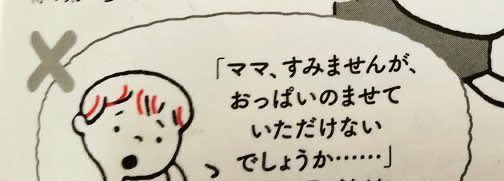 「ママ、すみませんが、
おっぱいのませて
いただけない
でしょうか……」